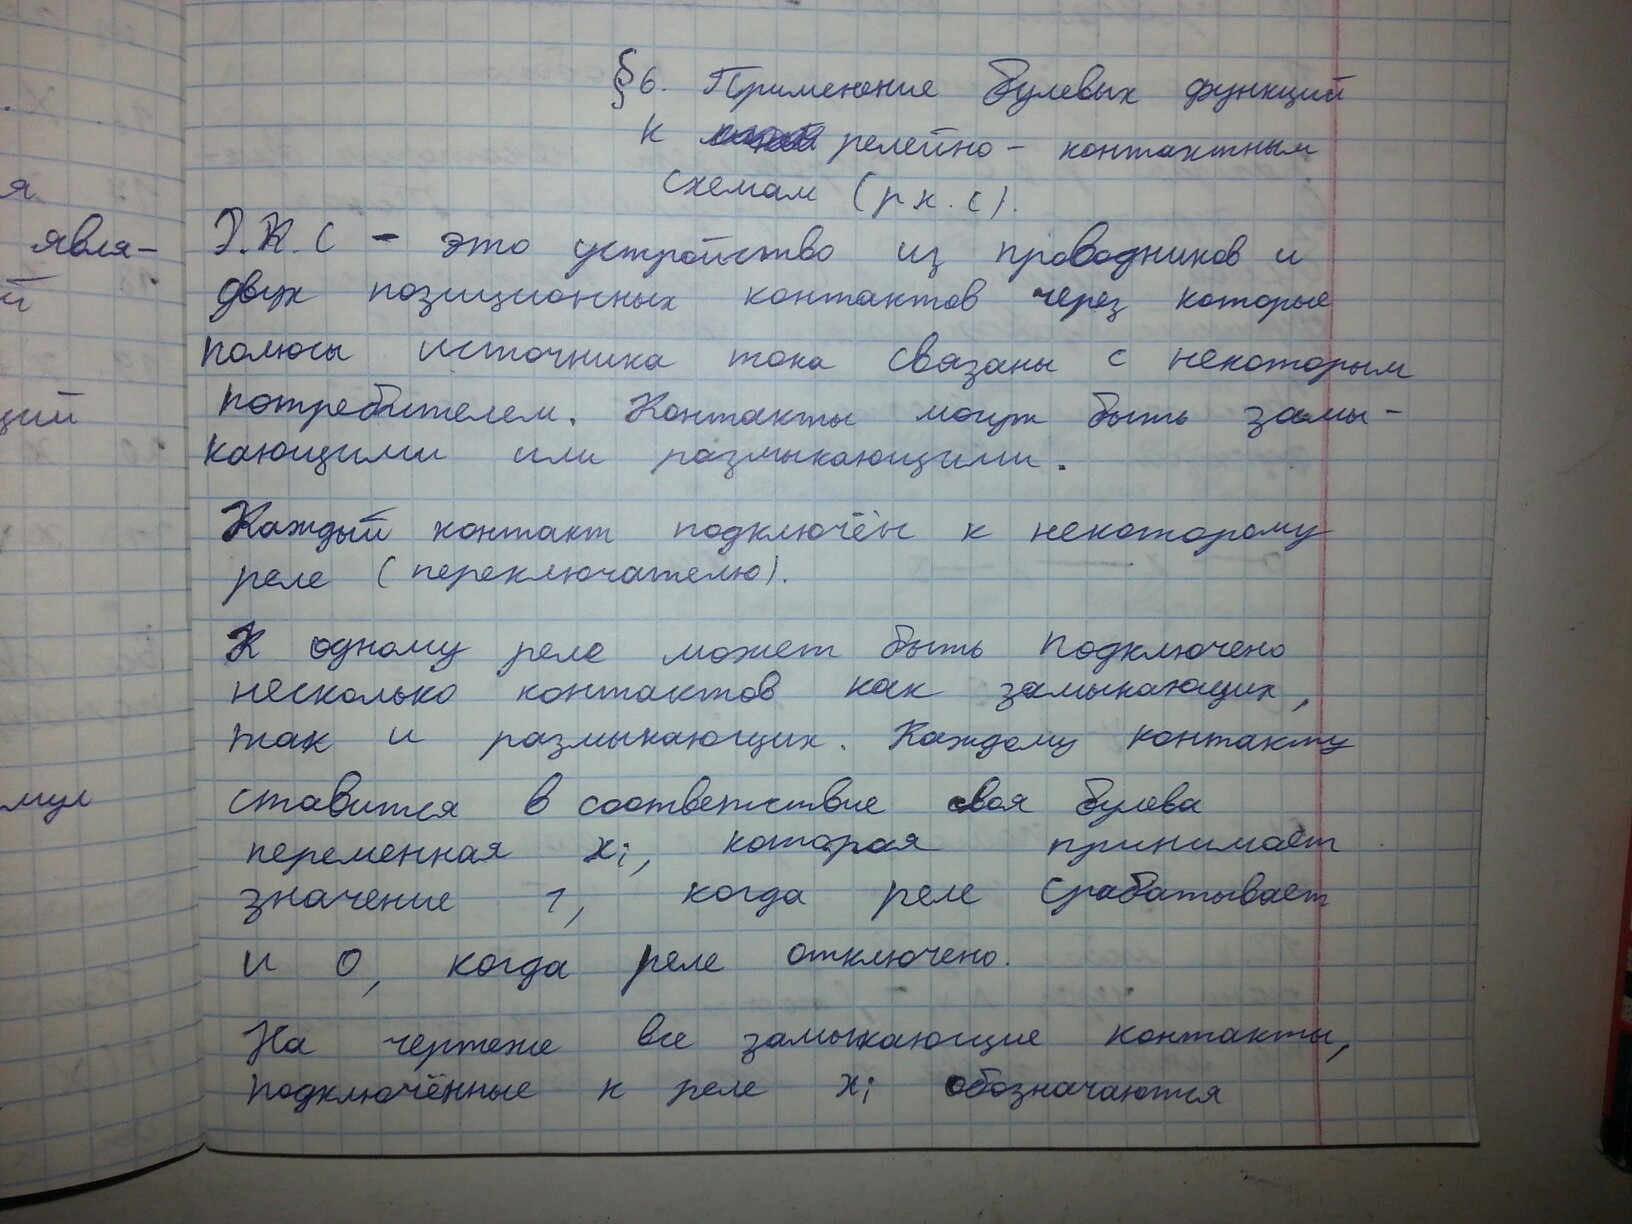 §6. Применение булевых функций
к релейно-контактным
схемам (р к. с).
Р.К.С - это устройство из проводников и
двух позиционных контактов через которые
полюсы источника тока связаны с некоторым
потребителем. Контакты могут быть замы-
кающими или размыкающими.
Каждый контакт подключён к некоторому
реле (переключателю).
К одному реле может быть подключено
несколько контактов как замыкающих,
так и размыкающих. Каждому контакту
ставится в соответствие своя булева
переменная xi, которая принимает
значение 1, когда реле срабатывает
и 0, когда реле отключено.
На чертеже все замыкающие контакты,
подключённые к реле xi обозначаются
я
явля-
й
ций
мул